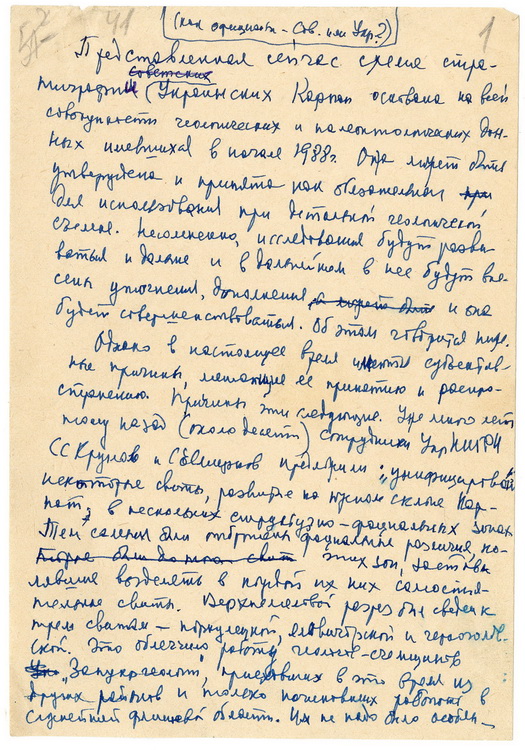 41
1
(как официальн – Сов. или Укр.?)
Представленная сейчас схема стра-
тиграфии Советских (Украинских Карпат основана на всей
совокупности геологических и палеонтологических дан-
ных имевшихся в начале 1988г. Она может быть
утверждена и принята как обязательная при
для использования при детальной геологической
съемке. Несомненно, исследования будут разви-
ваться и далее и в дальнейшем в нее будут вне-
сены уточнения, дополнения и она
будет совершенствоваться. Об этом говорится ниже.
Однако в настоящее время имеются субъектив-
ные причины, мешающие ее принятию и распро-
странению. Причины эти следующие. Уже много лет
тому назад (около десяти) сотрудники УкрНИГРИ
СС Круглов и СЕ Смирнов предложили "унифицировать"
некоторые свиты, развитые на южном склоне Кар-
пат, в нескольких структурно-фациальных зонах
Тем самым были отброшены фациальные различия, ко-
торые были до этих зон, застав-
лявшие возделеть в каждой их них самостоя-
тельные свиты. Верхнемеловой разрез был сведен к
трем свитам – поркулецкой, яловичорской и чорноголов-
ской. Это облегчило работу геологов-съемщиков
"Запукргеологии", приехавших в это время из
других районов и только начинавших работать в
сложнейшей флишевой области. Им не надо было особен-